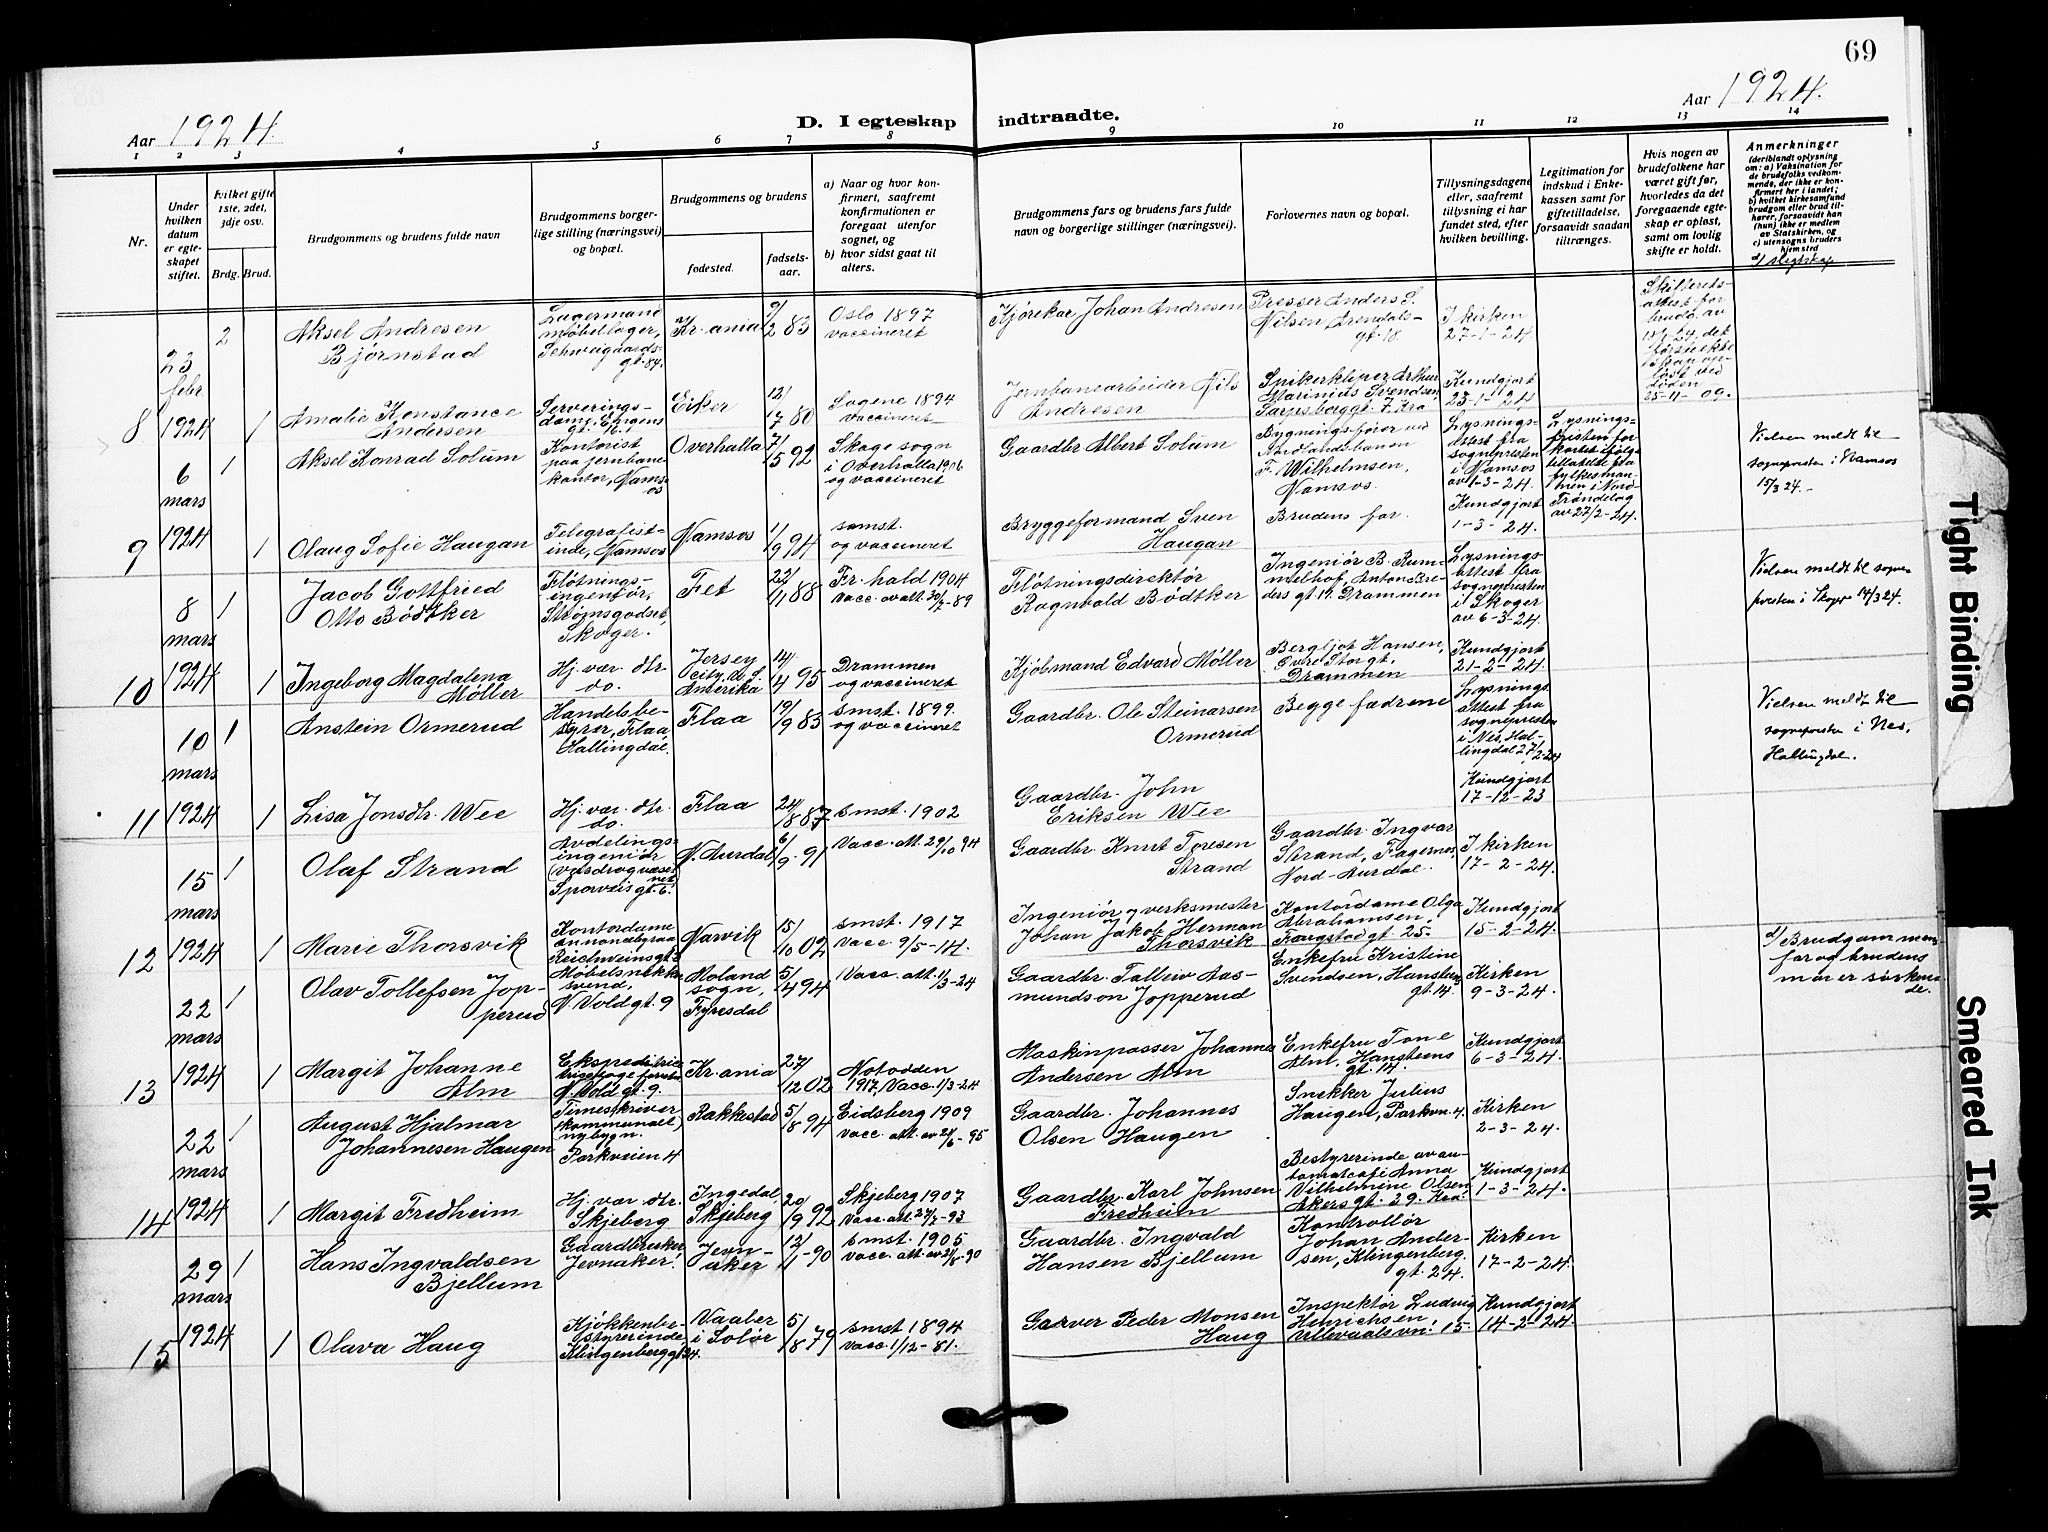 69
Aar 1924.
D. I egteskap indtraadte.
Aar 1924.
1 2 3 4 5 6 7 8 9 10 11 12 13 14
Nr.
Under hvilken datum er egteskapet stiftet.
hvilket gifte 1ste, 2det, 3dje osv.
Brdg. Brud.
Brudgommens og brudens fulde navn
Brudgommens borgerlige stilling (næringsvei) og bopæl.
Brudgommens og brudens
fødested.
fødselsaar.
a) Naar og hvor konfirmert, saafremt konfirmationen er foregaat utenfor sognet, og
b) hvor sidst gaat til alters.
Brudgommens fars og brudens fars fulde navn og borgerlige stillinger (næringsvei).
Forlovernes navn og bopæl.
Tillysningsdagene eller, saafremt tillysning ei har fundet sted, efter hvilken bevilling.
Legitimation for indskud i Enkekassen samt for giftetilladelse, forsaavidt saadan tiltrænges.
Hvis nogen av brudefolkene har været gift før, hvorledes da det foregaaende egteskap er opløst, samt om lovlig skifte er holdt.
Anmerkninger
(deriblandt oplysning om: a) Vaksination for de brudefolks vedkommende, der ikke er konfirmert her i landet; b) hvilket kirkesamfund brudgom eller brud tilhører, forsaavidt han (hun) ikke er medlem av Statskirken, og c) utensogns bruders hjemsted
d/ slegtskap
8
23 febr 1924
2
Aksel Andresen Bjørnstad
Lagermand møbellager, Schweigaardsgt. 84.
Kr.ania
9/2 83
Oslo 1897 vaccineret
Kjørekar Johan Andresen
Presser Anders S. Nilsen Arendalsgt. 18.
I kirken 27-1-24
Skifteretsattest for brudg. av
det første ekteskap opløst ved døden 25-11-09.
1
Amalie Konstance Andersen
Serveringsdame,
Eiker
12/7 80
Sagene 1894 vaccineret
Jernbanearbeider Nils Andresen
Spikerklipper Arthur Marinius Svendsen Sarpsborggt. 7. Kra
Kundgjort 23-1-24
9
6 mars 1924
1
Aksel Konrad Solum
Kontorist paa jernbanekontor, Namsos
Overhalla
7/5 92
Skage sogn i Overhalla 1906 og vaccineret
Gaardbr Albert Solum
Bygningsfører ved Nordlandsbanen F. Wilhelmsen, Namsos.
Lysningsattest fra sognepresten i Namsos av 1-3-24.
Lysningsfristen forkortet ifølge tillatelse fra fylkesmannen i Nord-Trøndelag av 27/2-24.
Vielsen meldt til sognepresten i Namsos 15/3 24.-
1
Olaug Sofie Haugan
Telegrafistinde, Namsos
Namsos
1/9 94
samst. og vaccineret
Bryggeformand Sven Haugan
Brudens far.
Kundgjort 1-3-24.
10
8 mars 1924
1
Jacob Gottfried Otto Bødtker
Fløtningsingeniør, Strømsgodset, Skoger.
Fet
22/11 88
Fr.hald 1904 vacc. av att. 30/7-89
Fløtningsdirektør Ragnvald Bødtker
Ingeniør B. Rummelhof, Anton Breders gt. 17. Drammen
Lysningsattest fra sognepresten i Skoger av 6-3-24.
Vielsen meldt til sognepresten i Skoger 14/3 24.
1
Ingeborg Magdalena Møller
Hj.vær. dtr. do.
Jersey City, U.S. Amerika
14/4 95
Drammen og vaccineret
Kjøbmand Edvard Møller
Bergljot Hansen, Øvre Storgt. Drammen
Kundgjort 21-2-24.
11
10 mars 1924
1
Anstein Ormerud
Handelsbestyrer, Flaa, Hallingdal.
Flaa
19/9 83
smst. 1899. og vaccineret
Gaardbr. Ole Steinarsen Ormerud
Begge fædrene
Lysningsattest fra sognepresten i Nes, Hallingdal 27/2-24
Vielsen meldt til sognepresten i Nes, Hallingdal.
1
Lisa Jonsdtr. Wee
Hj.vær. dtr. do.
Flaa
24/8 87
smst. 1902
Gaardbr. John Eriksen Wee
Kundgjort 17-12-23
12
15 mars 1924
1
Olaf Strand
Avdelingsingeniør (vasdragvæsenet) Sporveisgt. 6.
N. Aurdal
6/9-91
Vacc. att. 29/10 94
Gaardbr. Knut Toresen Strand
Gaardbr. Ingvar Strand, Fagernes, Nord-Aurdal.
I kirken 17-2-24.
1
Marie Thorsvik
Kontordame annoncebyraa Reichweinsgt.
Narvik
15/10 02
smst. 1917 Vacc 9/5-14.
Ingeniør og verksmester Johan Jakob Herman Thorsvik
Kontordame Olga Abrahamsen, Fougstad gt. 25.
Kundgjort 15-2-24.
13
22 mars 1924
1
Olav Tollefsen Jopperud
Møbelsnekkersvend, N. Voldgt. 9
Moland sogn, Fyresdal
5/4 94
Vacc. att. 1/3-24
Gaardbr. Talleiv Aasmundson Jopperud
Enkefru Kristine Svendsen, Hansteens gt. 14.
Kirken 9-3-24.
d/ Brudgommens far og brudens mor er søskende.
1
Margit Johanne Alm
Ekspeditrice
N. Vold gt. 9.
Kr.ania
27/12 02
Notodden 1917, Vacc. 1/3-24
Maskinpasser Johannes Andersen Alm
Enkefru Tone Alm, Hansteens gt. 14.
Kundgjort 6-3-24.
14
22 mars 1924
1
August Hjalmar Johannesen Haugen
Timeskriver (kommunalt nybygn. Parkveien 4
Rakkestad
5/8 94
Eidsberg 1909 Vacc. att. av 24/6-95
Gaardbr. Johannes Olsen Haugen
Snekker Julius Haugen, Parkvn. 4.
Kirken 2-3-24.
1
Margit Fredheim
Hj. vær. dtr. Skjeberg
Ingedal, Skjeberg
20/9 92
Skjeberg 1907 Vacc. att. 24/7-93
Gaardbr. Karl Johnsen Fredheim
Bestyrerinde av automatcafé Anna Vilhelmine Olsen Akersgt. 39. Kra.
Kundgjort 1-3-24.
15
29 mars 1924
1
Hans Ingvaldsen Bjellum
Gaardbruker Jevnaker.
Jevnaker
12/1-90
smst. 1905 Vacc. att av 21/8-90
Gaardbr. Ingvald Hansen Bjellum
Kontrollør Johan Andersen, Klingenberg gt. 24.
Kirken 17-2-24.
1
Olava Haug
Kjøkkenbestyrerinde Klingenberggt. 24.
Vaaler i Solør
5/8 79
smst 1894 Vacc. 1/12-81.
Garver Peder Monsen Haug
Inspektør Ludvig Hinrichsen Ullevaalsvn. 15.
Kundgjort 14-2-24.
Tight Binding
Smeared Ink